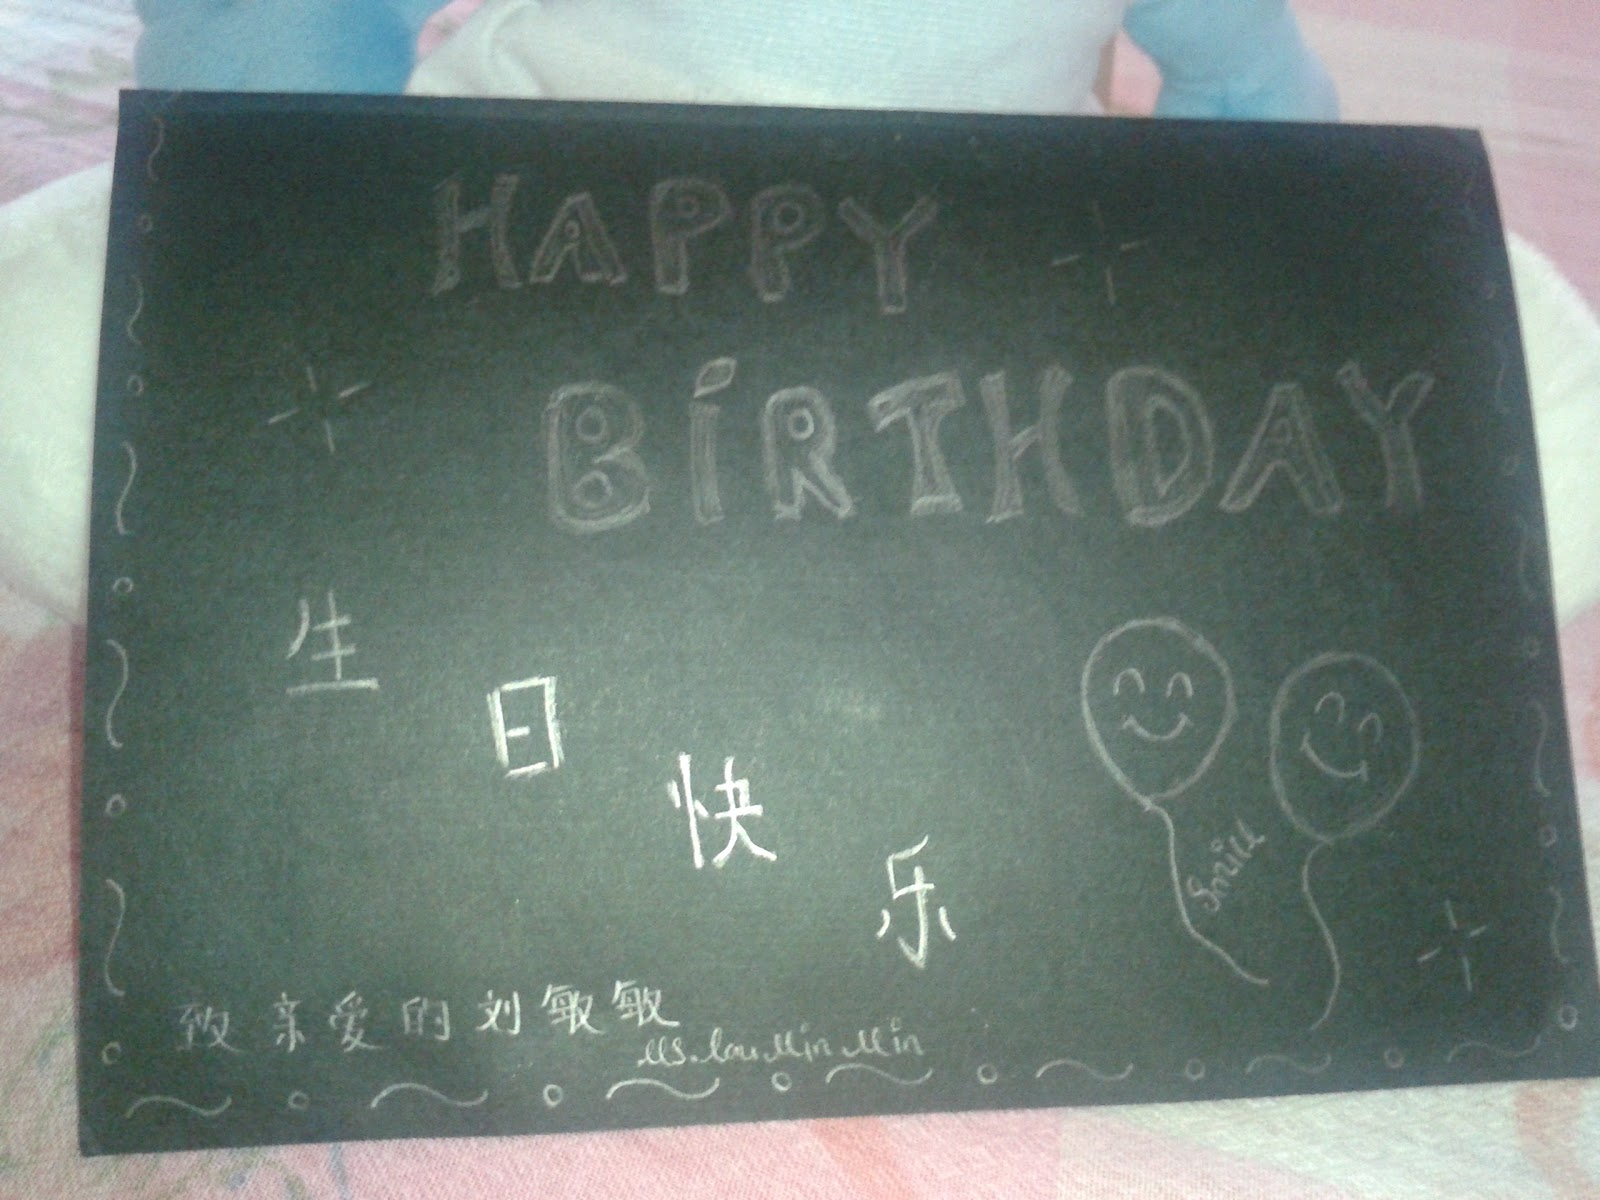 HAPPY
BiRTHDAY
生日快乐
Smile
致亲爱的刘敏敏
Ms. Lau Min Min